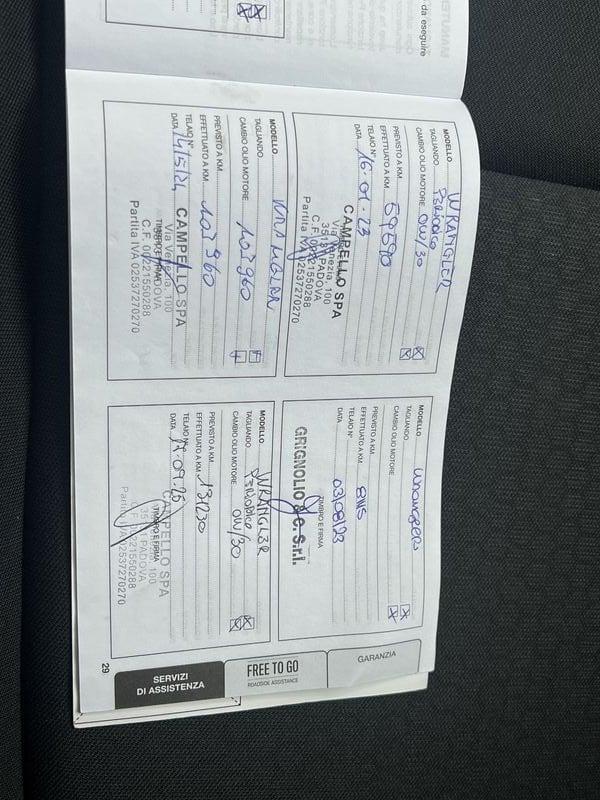 da eseguire
MODELLO WRANGLER
TAGLIANDO PERIODICO
CAMBIO OLIO MOTORE 0W/30
PREVISTO A KM
EFFETTUATO A KM 59590
TELAIO N°
DATA 16.01.23
CAMPELLO SPA
Via Venezia, 100
35131 PADOVA
C.F. 00221550288
Partita IVA 02537270270
MODELLO
TAGLIANDO
CAMBIO OLIO MOTORE
PREVISTO A KM
EFFETTUATO A KM
TELAIO N°
DATA 03/08/23
TIMBRO E FIRMA
GRIGNOLIO & C. S.r.l.
MODELLO WRANGLER
TAGLIANDO
CAMBIO OLIO MOTORE 103960
PREVISTO A KM
EFFETTUATO A KM 103960
TELAIO N°
DATA 14/5/24
CAMPELLO SPA
Via Venezia, 100
TIMBRO E FIRMA
C.F. 00221550288
Partita IVA 02537270270
MODELLO WRANGLER
TAGLIANDO PERIODICO
CAMBIO OLIO MOTORE 0W/30
PREVISTO A KM
EFFETTUATO A KM 131230
TELAIO N°
DATA 17.09.25
CAMPELLO SPA
TIMBRO E FIRMA
Partita IVA 02537270270
GARANZIA
FREE TO GO
ROADSIDE ASSISTANCE
SERVIZI
DI ASSISTENZA
29